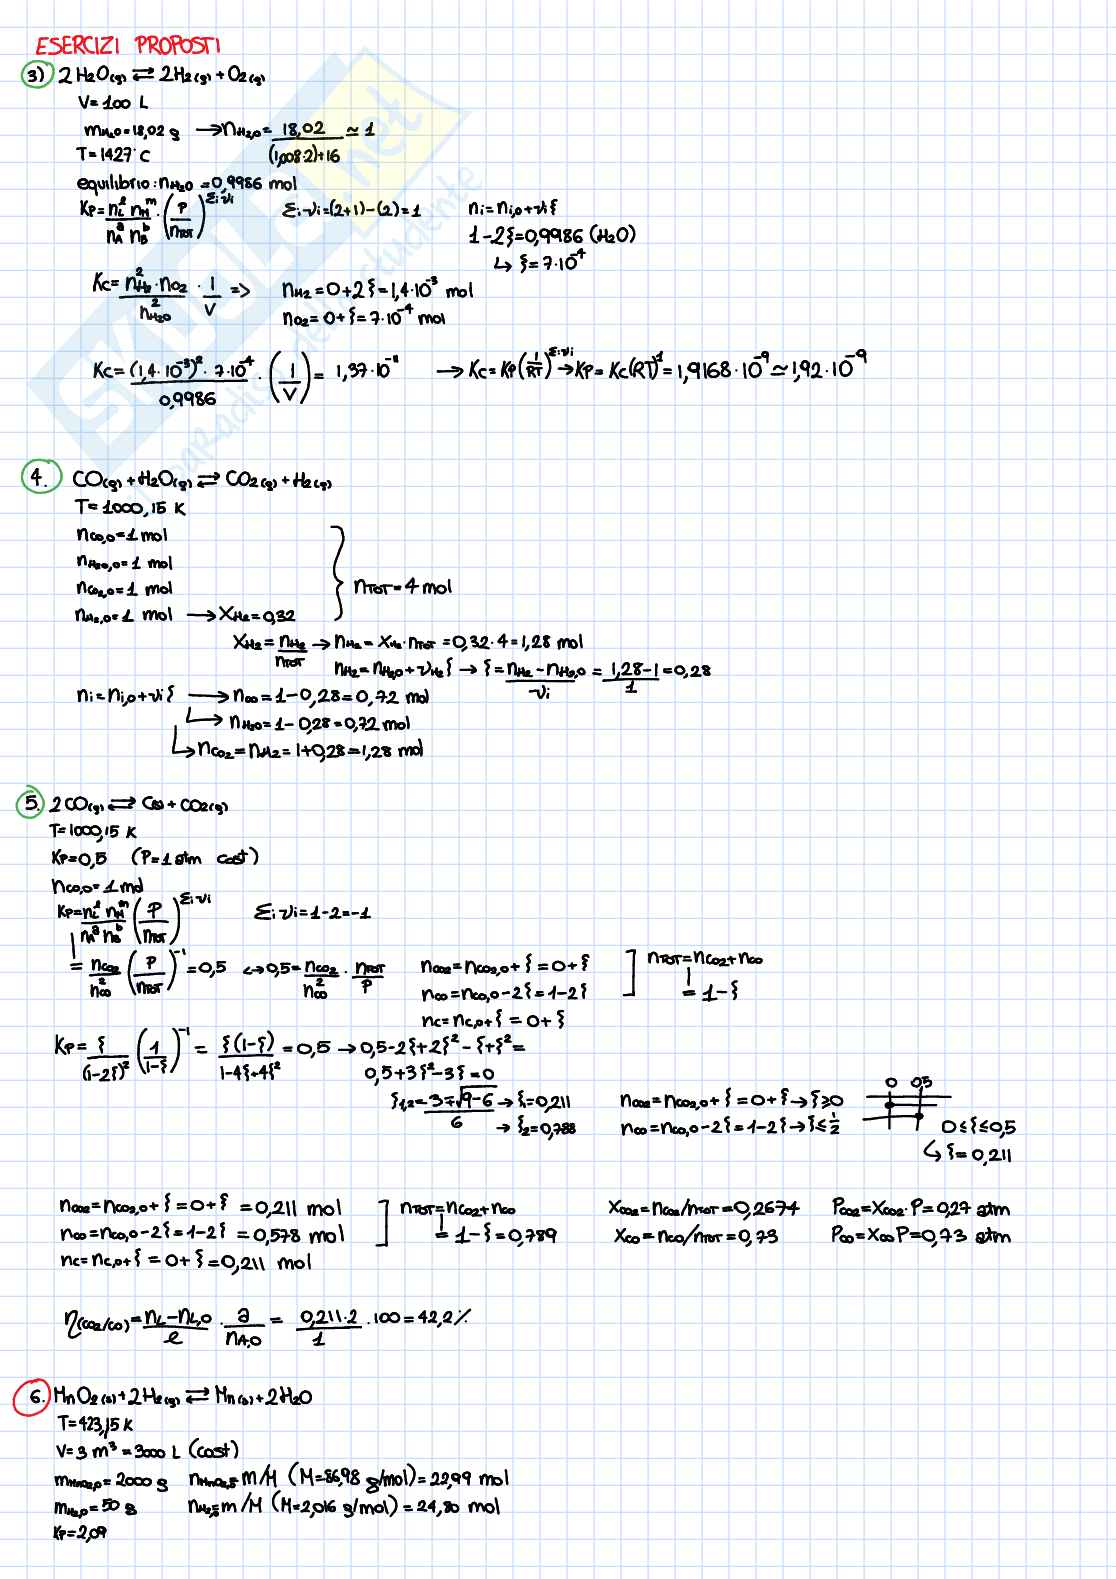 ESERCIZI PROPOSTI
3) 2H₂O(g) ⇄ 2H₂(g) + O₂(g)
V = 100 L
mH₂O = 18,02 g → nH₂O = 18,02/((1,008·2)+16) ≃ 1
T = 1427°C
equilibrio: nH₂O = 0,9986 mol
Kp = (nL^l nM^m)/(nA^a nB^b) · (P/nTOT)^Σi νi   Σi νi = (2+1)-(2) = 1   ni = ni,0 + νi ξ
1-2ξ = 0,9986 (H₂O)
↳ ξ = 7·10⁻⁴
Kc = (n²H₂ · nO₂)/n²H₂O · 1/V => nH₂ = 0+2ξ = 1,4·10⁻³ mol
nO₂ = 0+ξ = 7·10⁻⁴ mol
Kc = ((1,4·10⁻³)² · 7·10⁻⁴)/0,9986 · (1/V) = 1,37·10⁻¹¹ → Kc = Kp(1/RT)^Σi νi → Kp = Kc(RT)¹ = 1,9168·10⁻⁹ ≃ 1,92·10⁻⁹
4. CO(g) + H₂O(g) ⇄ CO₂(g) + H₂(g)
T = 1000,15 K
nCO,0 = 1 mol
nH₂O,0 = 1 mol
nCO₂,0 = 1 mol } nTOT = 4 mol
nH₂,0 = 1 mol → XH₂ = 0,32
XH₂ = nH₂/nTOT → nH₂ = XH₂ · nTOT = 0,32·4 = 1,28 mol
nH₂ = nH₂,0 + νH₂ξ → ξ = (nH₂ - nH₂,0)/νi = (1,28-1)/1 = 0,28
ni = ni,0 + νi ξ → nCO = 1-0,28 = 0,72 mol
↳ nH₂O = 1-0,28 = 0,72 mol
↳ nCO₂ = nH₂ = 1+0,28 = 1,28 mol
5. 2CO(g) ⇄ C(s) + CO₂(g)
T = 1000,15 K
Kp = 0,5 (P = 1 atm cost)
nCO,0 = 1 mol
Kp = (nL^l nM^m)/(nA^a nB^b) (P/nTOT)^Σi νi   Σi νi = 1-2 = -1
= nCO₂/n²CO (P/nTOT)⁻¹ = 0,5 ↔ 0,5 = nCO₂/n²CO · nTOT/P   nCO₂ = nCO₂,0 + ξ = 0+ξ   nTOT = nCO₂ + nCO
nCO = nCO,0 - 2ξ = 1-2ξ   = 1-ξ
nC = nC,0 + ξ = 0+ξ
Kp = ξ/(1-2ξ)² (1/1-ξ)⁻¹ = ξ(1-ξ)/(1-4ξ+4ξ²) = 0,5 → 0,5-2ξ+2ξ²-ξ+ξ² =
0,5+3ξ²-3ξ = 0
ξ1,2 = (3∓√9-6)/6 → ξ₁ = 0,211   nCO₂ = nCO₂,0 + ξ = 0+ξ → ξ ≥ 0   0   0,5
→ ξ₂ = 0,788   nCO = nCO,0 - 2ξ = 1-2ξ → ξ ≤ 1/2   0 ≤ ξ ≤ 0,5
↳ ξ = 0,211
nCO₂ = nCO₂,0 + ξ = 0+ξ = 0,211 mol   nTOT = nCO₂ + nCO   XCO₂ = nCO₂/nTOT = 0,2674   PCO₂ = XCO₂ · P = 0,27 atm
nCO = nCO,0 - 2ξ = 1-2ξ = 0,578 mol   = 1-ξ = 0,789   XCO = nCO/nTOT = 0,73   PCO = XCO P = 0,73 atm
nC = nC,0 + ξ = 0+ξ = 0,211 mol
η(CO₂/CO) = (nL - nL,0)/l · a/nA,0 = (0,211·2)/1 · 100 = 42,2%
6. MnO₂(s) + 2H₂(g) ⇄ Mn(s) + 2H₂O
T = 423,15 K
V = 3 m³ = 3000 L (cost)
mMnO₂,0 = 2000 g   nMnO₂,0 = m/M (M = 86,98 g/mol) = 22,99 mol
mH₂,0 = 50 g   nH₂,0 = m/M (M = 2,016 g/mol) = 24,80 mol
Kp = 2,09